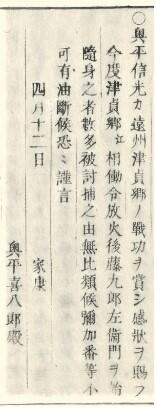 〇奥平信光カ遠州津貞郷ノ戰功ヲ賞シ感狀ヲ賜フ
今度津貞郷江相働令放火後藤九郎左衞門ヲ始
隨身之者數多被討捕之由無比類候彌加番等不
可有油斷候恐々謹言
四月十二日
家康
奥平喜八郎殿